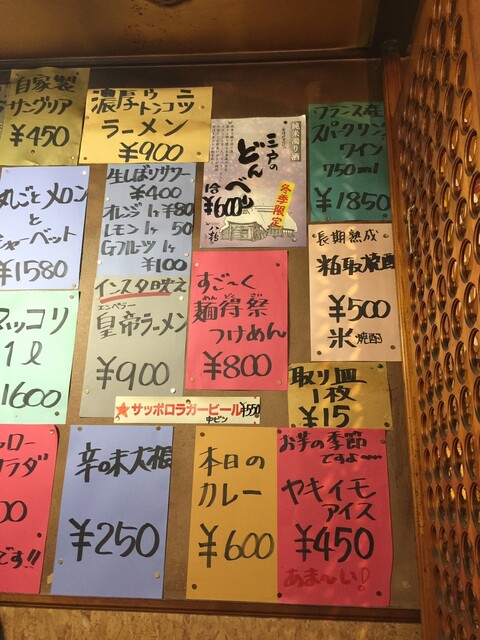 自家製
サングリア
¥450
濃厚ウニ
トンコツ
ラーメン
¥900
純米濁り酒
三戸の
どんべり
1合
¥600
冬季限定
フランス産
スパークリング
ワイン
750ml
¥1850
丸ごとメロン
と
シャーベット
¥1580
生しぼりサワー
¥400
オレンジ1ヶ¥80
レモン1ヶ50
Gフルーツ1ヶ
¥100
インスタ映え
エンペラー
皇帝ラーメン
¥900
すご〜く
めんとくさい
麺得祭
つけめん
¥800
長期熟成
粕取焼酎
¥500
米焼酎
マッコリ
1l
1600
★サッポロラガービール
中ビン
¥550
取り皿
1枚
¥15
ロー
ラダ
00
です!!
辛味大根
¥250
本日の
カレー
¥600
お芋の季節
ですよ〜
ヤキイモ
アイス
¥450
あま〜い!